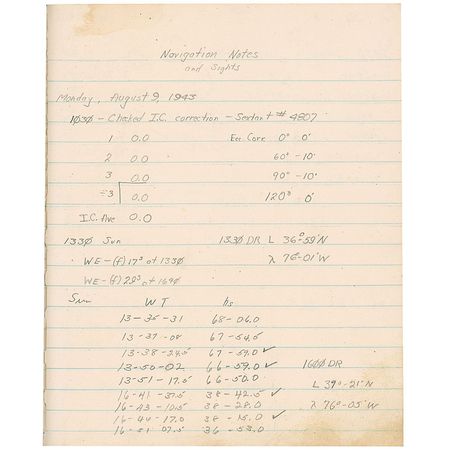 Navigation Notes
and Sights
Monday, August 9, 1943
1030 - Checked I.C. correction - Sextant # 4807
1 0.0 Ecc Corr 0° 0'
2 0.0 60° -10"
3 0.0 90° -10"
÷3 0.0 120° 0'
I.C. Ave 0.0
1330 Sun 1330 DR L 36°59'N
WE - (f) 17s at 1330 λ 76-01'W
WE - (f) at
Sun WT hs
13-35-31 68-06.0
13-37-08 67-54.5
13-38-24.5 67-59.0 ✓
13-50-02 66-59.0 ✓ 1600 DR
13-51-17.5 66-50.0 L 37°-21'N
16-41-37.5 38-42.5 ✓
16-43-10.5 38-28.0 λ 76°-05'W
16-44-17.0 38-15.0 ✓
16-51 07.5 36-53.0